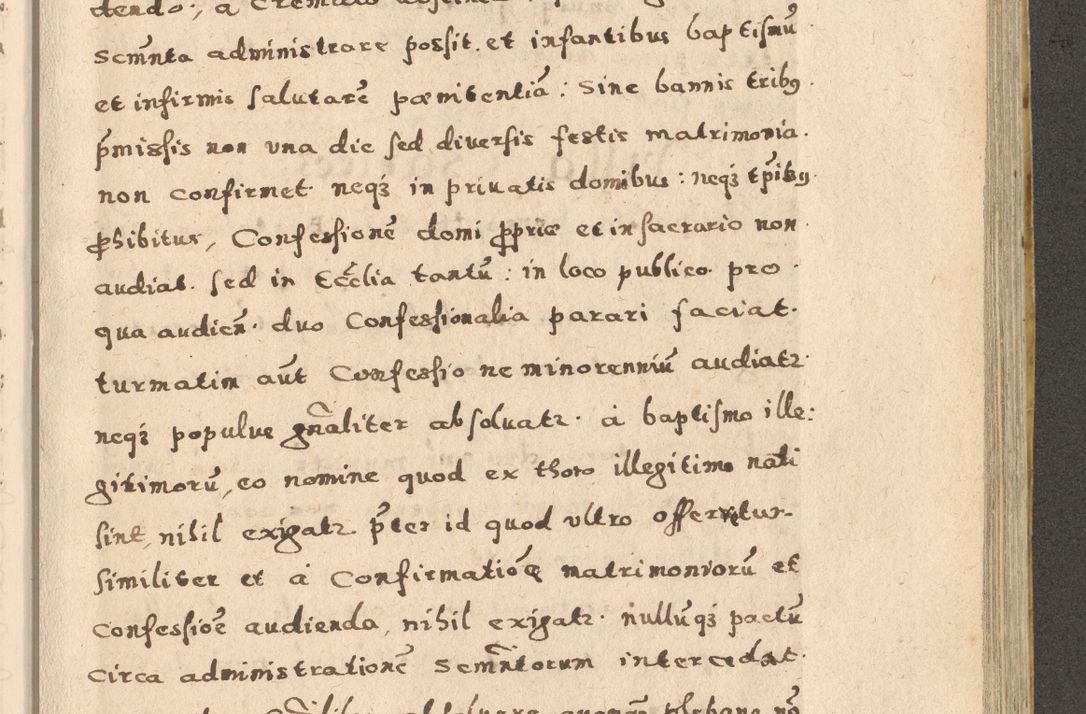 dendo; a
Scm̃nta administrare possit. et infantibus baptismũ
et infirmis salutarẽ pœnitentiã: Sine bannis tribꝰ
p̃missis non una die sed diversis festis matrimonia.
non confirmet. neqȝ in privatis domibus: neqȝ tp̃ibꝰ
ꝓhibitus, Confessionẽ domi ꝓpriæ et in sacrario non.
audiat. sed in Eccl̃ia tantũ: in loco publico. pro.
qua audien̄. duo Confessionalia parari faciat.
turmatim aũt Confessio ne minorenniũ audiatꝛ.
neqȝ populus gñaliter absolvatꝛ. à baptismo ille:
gitimorũ, eo nomine quod ex thoro illegitimo nati
sint, nihil exigatꝛ p̃ter id quod ultro offertur.
Similiter et à Confirmatioẽ matrimoniorũ et
Confessioẽ audienda, nihil exigatꝛ. nullũqȝ pactũ
circa administrationẽ Scm̃ntorum intercedat.